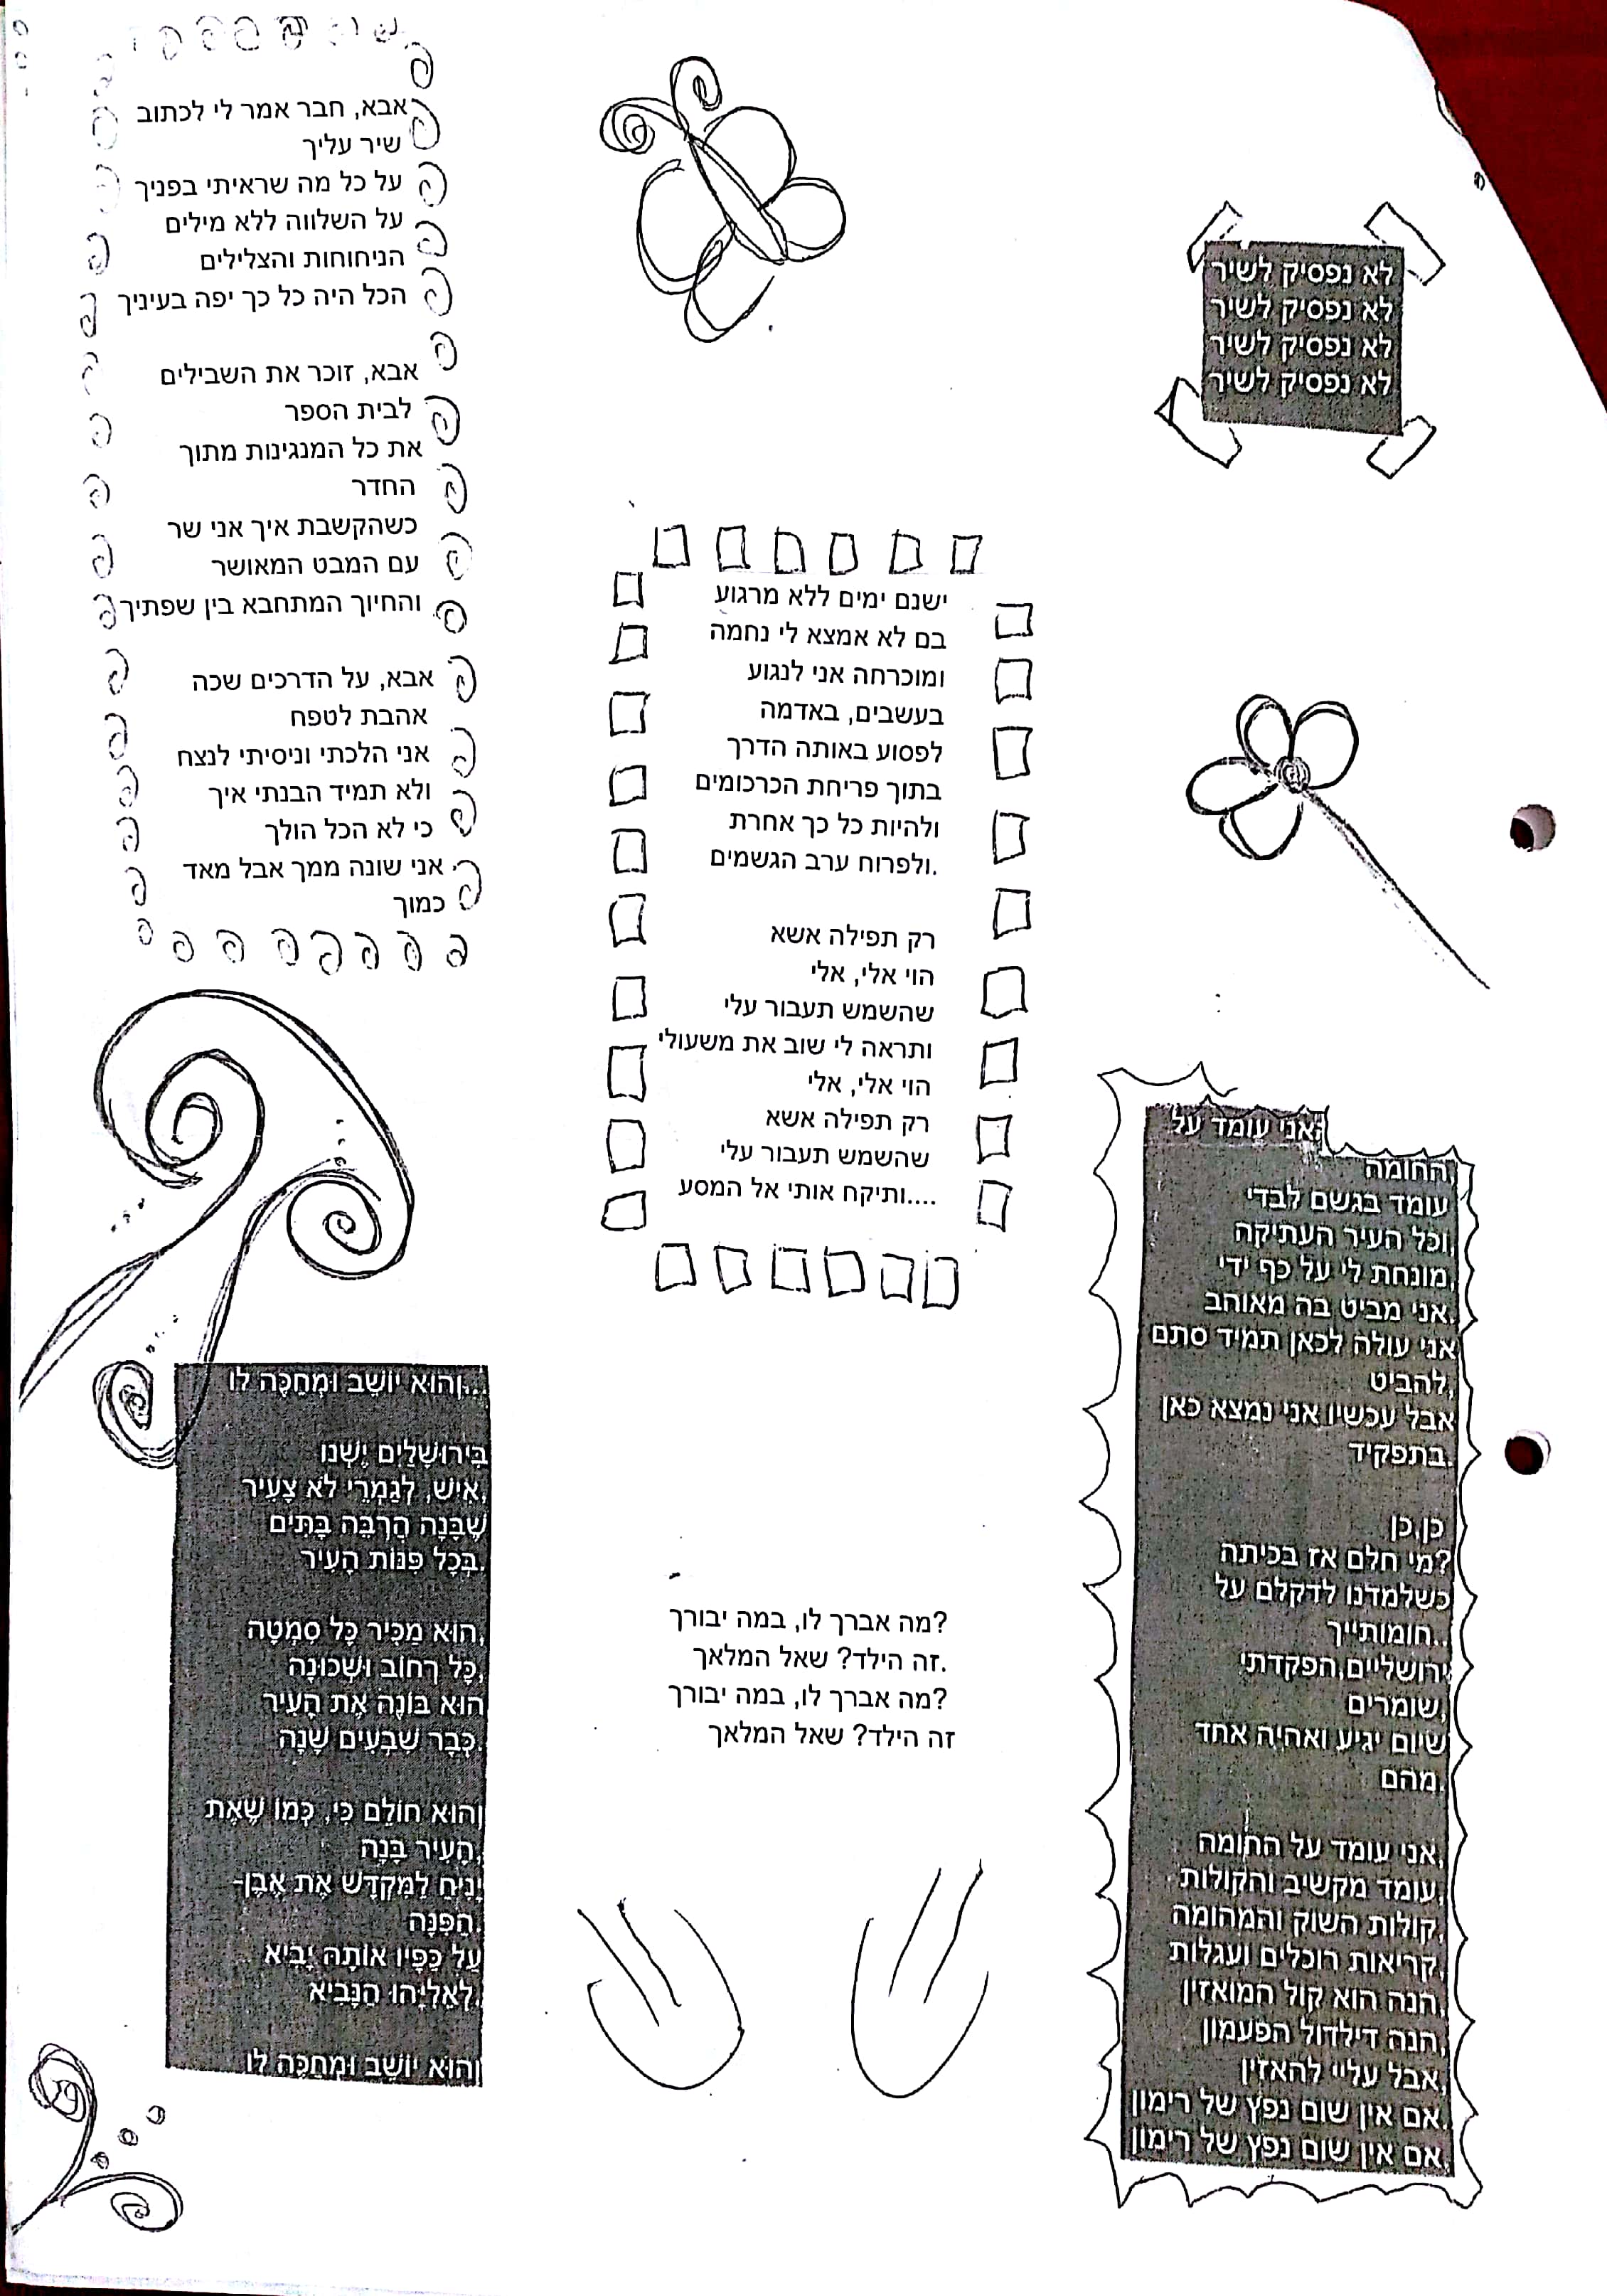 לא נפסיק לשיר
לא נפסיק לשיר
לא נפסיק לשיר
לא נפסיק לשיר
אני עומד על
החומה,
עומד בגשם לבדי
וכל העיר העתיקה,
מונחת לי על כף ידי,
אני מביט בה מאוהב.
אני עולה לכאן תמיד סתם
להביט,
אבל עכשיו אני נמצא כאן
בתפקיד.
כן,כן
מי חלם אז בכיתה?
כשלמדנו לדקלם על
חומותייך..
ירושליים,הפקדתי
שומרים,
שיום יגיע ואהיה אחד
מהם.
אני עומד על החומה,
עומד מקשיב והקולות,
קולות השוק והמהומה,
קריאות רוכלים ועגלות,
הנה הוא קול המואזין,
הנה דילדול הפעמון,
אבל עליי להאזין,
אם אין שום נפץ של רימון.
אם אין שום נפץ של רימון,
ישנם ימים ללא מרגוע
בם לא אמצא לי נחמה
ומוכרחה אני לנגוע
בעשבים, באדמה
לפסוע באותה הדרך
בתוך פריחת הכרכומים
ולהיות כל כך אחרת
ולפרוח ערב הגשמים.
רק תפילה אשא
הוי אלי, אלי
שהשמש תעבור עלי
ותראה לי שוב את משעולי
הוי אלי, אלי
רק תפילה אשא
שהשמש תעבור עלי
ותיקח אותי אל המסע....
מה אברך לו, במה יבורך?
זה הילד? שאל המלאך.
מה אברך לו, במה יבורך?
זה הילד? שאל המלאך
אבא, חבר אמר לי לכתוב
שיר עליך
על כל מה שראיתי בפניך
על השלווה ללא מילים
הניחוחות והצלילים
הכל היה כל כך יפה בעיניך
אבא, זוכר את השבילים
לבית הספר
את כל המנגינות מתוך
החדר
כשהקשבת איך אני שר
עם המבט המאושר
והחיוך המתחבא בין שפתיך
אבא, על הדרכים שכה
אהבת לטפח
אני הלכתי וניסיתי לנצח
ולא תמיד הבנתי איך
כי לא הכל הולך
אני שונה ממך אבל מאד
כמוך
והוּא יוֹשֵׁב וּמְחַכֶּה לוֹ...
בִּירוּשָׁלַיִם יֶשְׁנוֹ
אִישׁ, לְגַמְרֵי לֹא צָעִיר,
שֶׁבָּנָה הַרְבֵּה בָּתִּים
בְּכָל פִּנּוֹת הָעִיר.
הוּא מַכִּיר כָּל סִמְטָה,
כָּל רְחוֹב וּשְׁכוּנָה,
הוּא בּוֹנֶה אֶת הָעִיר
כְּבָר שִׁבְעִים שָׁנָה.
וְהוּא חוֹלֵם כִּי, כְּמוֹ שֶׁאֶת
הָעִיר בָּנָה,
יָנִיחַ לַמִּקְדָּשׁ אֶת אֶבֶן-
הַפִּנָּה.
עַל כַּפָּיו אוֹתָהּ יָבִיא
לְאֵלִיָּהוּ הַנָּבִיא.
וְהוּא יוֹשֵׁב וּמְחַכֶּה לוֹ